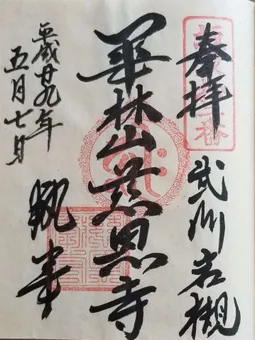 奉拝
武州岩槻
華林山慈恩寺
平成廿九年
五月七日